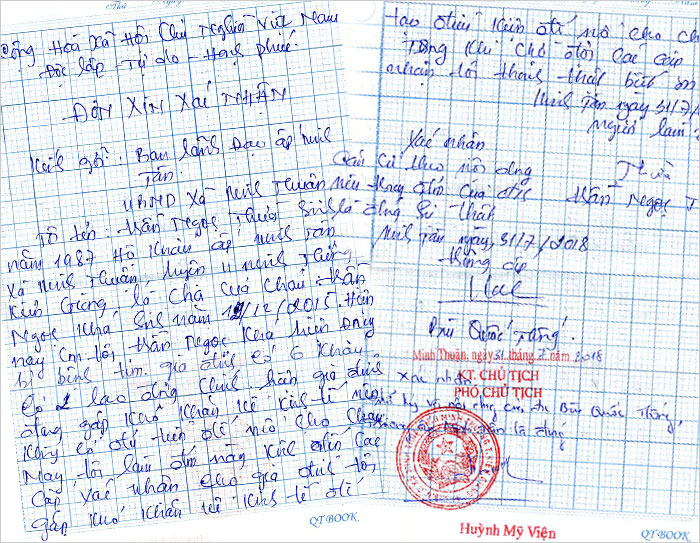 Cộng Hoà Xã Hội Chủ Nghĩa Việt Nam
Độc lập - Tự do - Hạnh phúc.
ĐƠN XIN XÁC NHẬN
Kính gởi: Ban lãnh Đạo ấp Minh
Tân
UBND Xã Minh Thuận
Tô tên: Trần Ngọc Thướt Sinh
năm 1987 Hộ khẩu ấp Minh Tân
Xã Minh Thuận, huyện U Minh Thượng
Kiên Giang là Cha của cháu: Trần
Ngọc Khá Sinh năm /12/2015. Hiện
nay con tôi Trần Ngọc Khá hiện Đang
bị bệnh tim. gia đình có 6 khẩu
có 2 lao động chính, hoàn gia đình
đang gặp khó khăn về kinh tế nên
không có đủ tiền để mổ cho cháu
Nay tôi làm đơn này kính đến các
cấp xác nhận cho gia đình tôi
gặp khó khăn về kinh tế để
QT BOOK.
tạo điều kiện để mổ cho ch
Trong khi chờ đợi các cấp
nhận tôi thành thật biết ơn
Minh Tân ngày 31/7/
Người làm
Xác nhận
Căn cứ theo nội dung
nêu trong đơn của
là đúng sự thật
Minh Tân ngày, 31/7/2018
Trưởng ấp
Bùi Quốc Thắng.
Trần Ngọc T
Minh Thuận, ngày 31 tháng 7 năm 2018
KT. CHỦ TỊCH
PHÓ CHỦ TỊCH
Xác nhận
chữ ký và nội dung của ông Bùi Quốc Thắng,
là đúng
Huỳnh Mỹ Viện
QT BOOK.